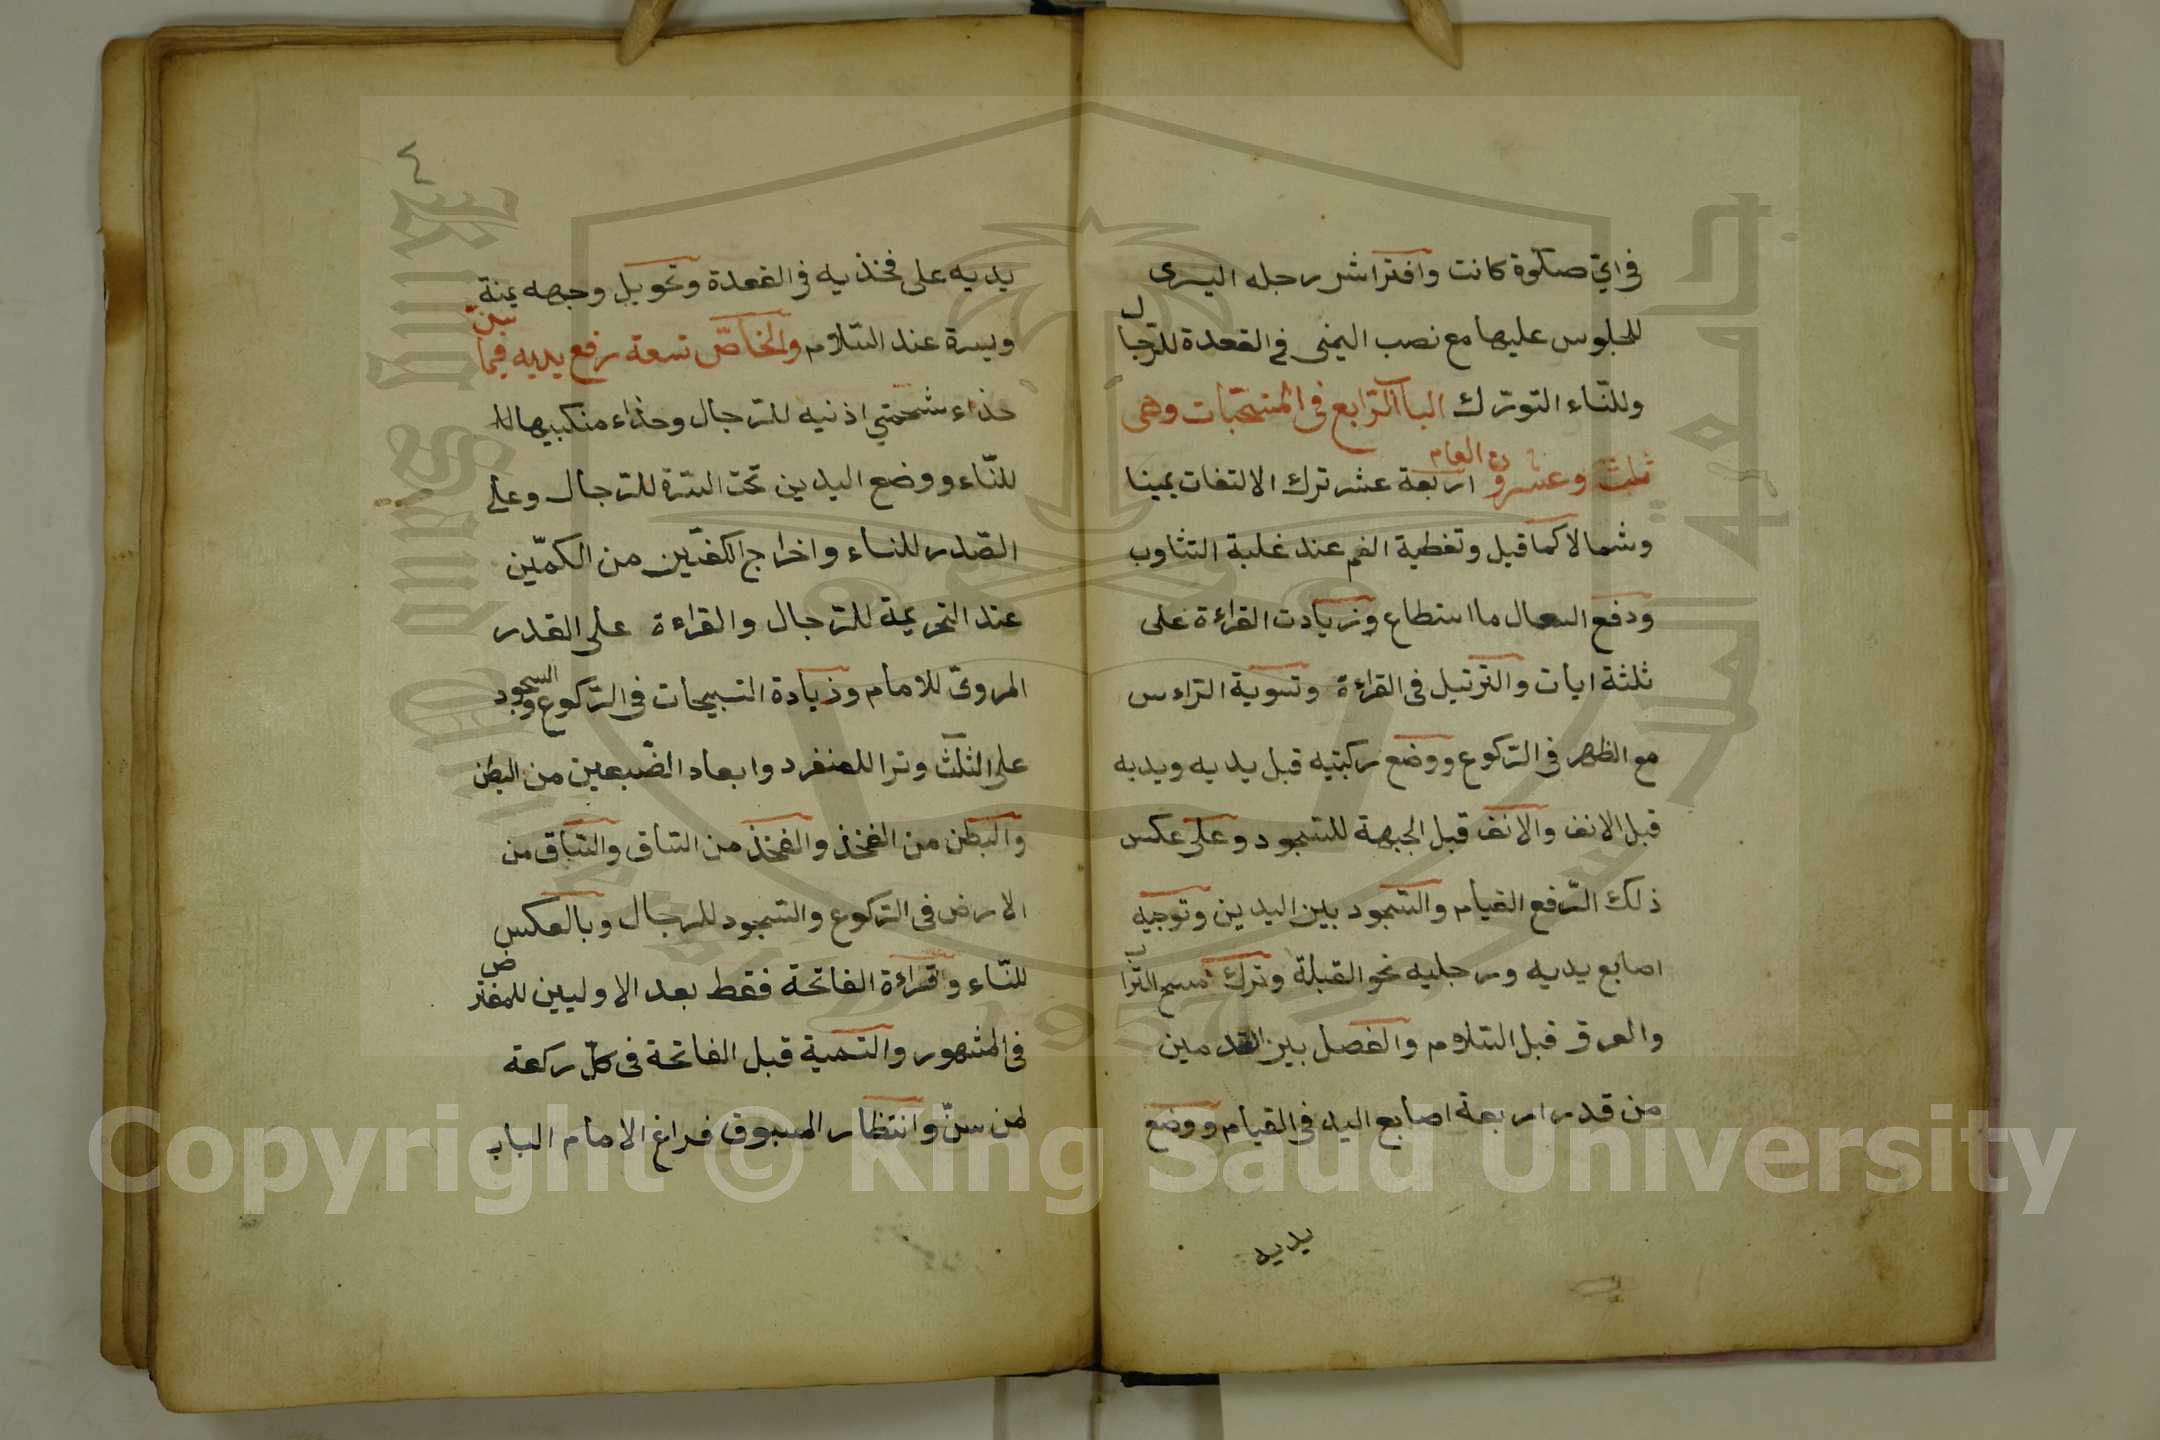 في اي صلوة كانت وافتراش رجله اليسرى
للجلوس عليها مع نصب اليمنى في القعدة للرجال
وللنساء التورك الباب الرابع في المستحبات وهي
ثلث وعشرون العام اربعة عشر ترك الالتفات يمينا
وشمالا كما قبل وتغطية الفم عند غلبة التثاوب
ودفع السعال ما استطاع وزيادت القراءة على
ثلثة ايات والترتيل في القراءة وتسوية الراس
مع الظهر في الركوع ووضع ركبتيه قبل يديه ويديه
قبل الانف والانف قبل الجبهة للسجود وعلى عكس
ذلك الرفع القيام والسجود بين اليدين وتوجيه
اصابع يديه ورجليه نحو القبلة وترك مسح التراب
والعرق قبل السلام والفصل بين القدمين
من قدر اربعة اصابع اليد في القيام ووضع
يديه
٤
يديه على فخذيه في القعدة وتحويل وجهه يمنة
ويسرة عند السلام والخاص تسعة رفع يديه فيما سن
حذاء شحمتي اذنيه للرجال وحذاء منكبيها
للنساء ووضع اليدين تحت السرة للرجال وعلى
الصدر للنساء واخراج الكفين من الكمين
عند التحريمة للرجال والقراءة على القدر
المروي للامام وزيادة التسبيحات في الركوع والسجود
على الثلث وترا للمنفرد وابعاد الضبعين من البطن
والبطن من الفخذ والفخذ من الساق والساق من
الارض في الركوع والسجود للرجال وبالعكس
للنساء وقراءة الفاتحة فقط بعد الاوليين للمفترض
في المشهور والتسمية قبل الفاتحة في كل ركعة
لمن سن وانتظار المسبوق فراغ الامام الباب
جامعة الملك سعود
King Saud University
1957
Copyright © King Saud University